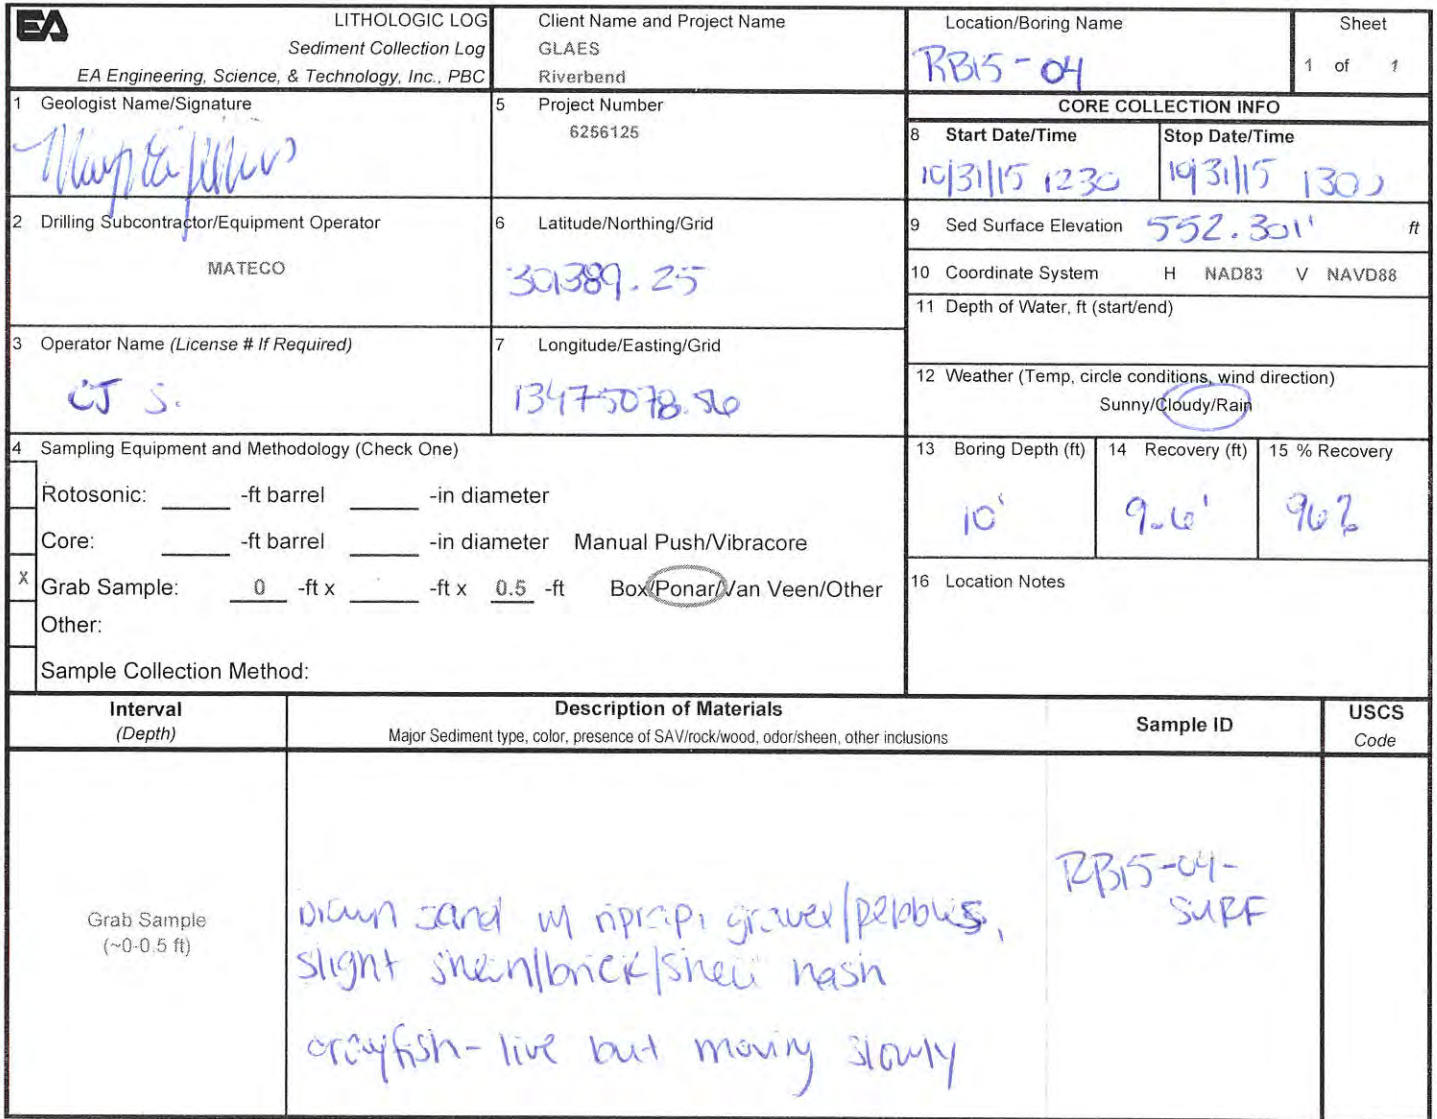 EA
LITHOLOGIC LOG
Sediment Collection Log
EA Engineering, Science, & Technology, Inc., PBC
Client Name and Project Name
GLAES
Riverbend
Location/Boring Name
RB15-04
Sheet
1 of 1
1 Geologist Name/Signature
5 Project Number
6256125
CORE COLLECTION INFO
8 Start Date/Time
10/31/15 1230
Stop Date/Time
10/31/15 1300
2 Drilling Subcontractor/Equipment Operator
MATECO
6 Latitude/Northing/Grid
301389.25
9 Sed Surface Elevation 552.301' ft
10 Coordinate System H NAD83 V NAVD88
11 Depth of Water, ft (start/end)
3 Operator Name (License # If Required)
CJ S.
7 Longitude/Easting/Grid
13475078.56
12 Weather (Temp, circle conditions, wind direction)
Sunny/Cloudy/Rain
4 Sampling Equipment and Methodology (Check One)
Rotosonic: -ft barrel -in diameter
Core: -ft barrel -in diameter Manual Push/Vibracore
X Grab Sample: 0 -ft x - -ft x 0.5 -ft Box/Ponar/Van Veen/Other
Other:
Sample Collection Method:
13 Boring Depth (ft)
10'
14 Recovery (ft)
9.6'
15 % Recovery
96%
16 Location Notes
Interval
(Depth)
Description of Materials
Major Sediment type, color, presence of SAV/rock/wood, odor/sheen, other inclusions
Sample ID
USCS
Code
Grab Sample
(~0-0.5 ft)
brown sand w/ riprap, gravel/pebbles,
slight sheen/brick/shell hash
crayfish - live but moving slowly
RB15-04-
SURF